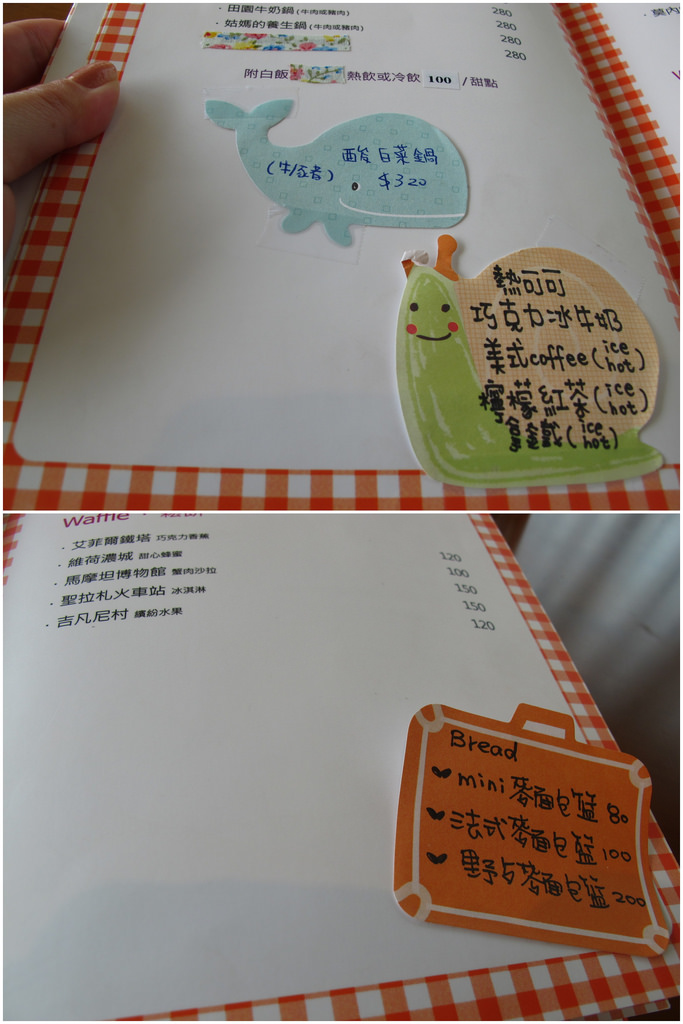 · 田園牛奶鍋 (牛肉或豬肉) 280
· 姑媽的養生鍋 (牛肉或豬肉) 280
280
280
附白飯 熱飲或冷飲 100 / 甜點
酸白菜鍋
(牛or豬)
$320
熱可可
巧克力冰牛奶
美式coffee (ice hot)
檸檬紅茶 (ice hot)
(ice hot)
Waffle ·
· 艾菲爾鐵塔 巧克力香蕉 120
· 維荷濃城 甜心蜂蜜 100
· 馬摩坦博物館 蟹肉沙拉 150
· 聖拉札火車站 冰淇淋 150
· 吉凡尼村 繽紛水果 120
Bread
mini 麥面包籃 80
法式麥面包籃 100
野占麥面包籃 200